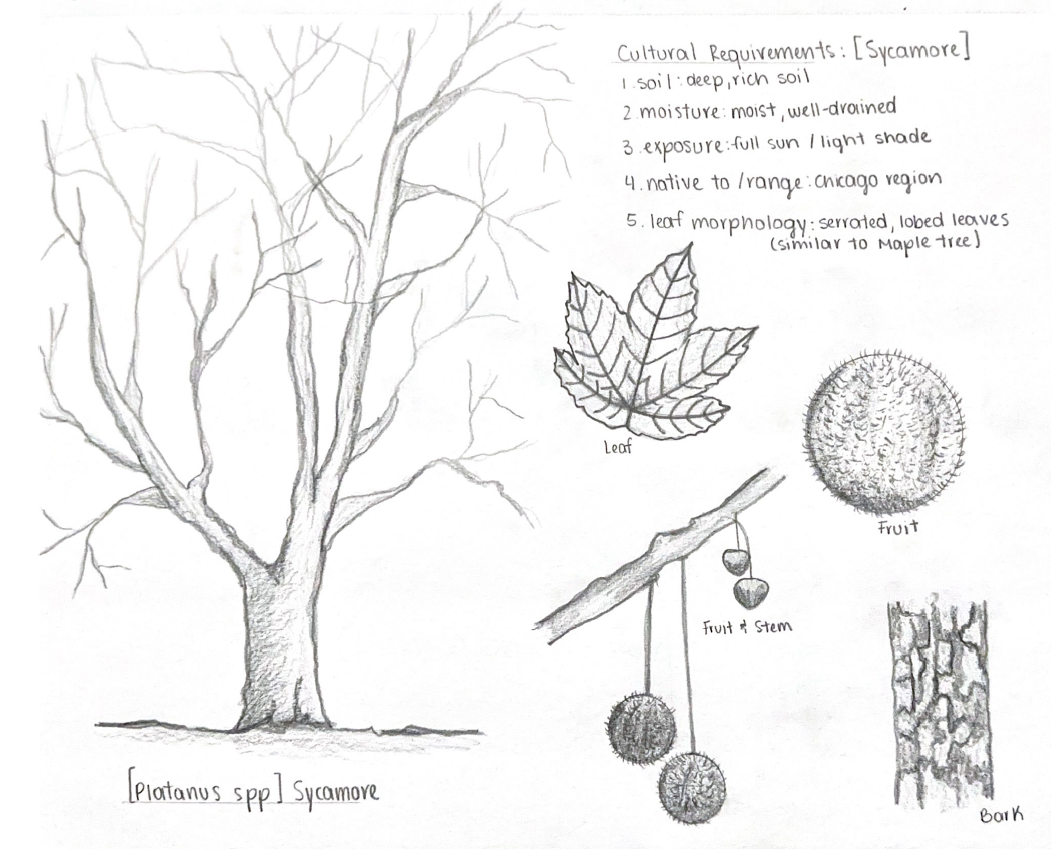 Cultural Requirements: [Sycamore]
1. soil: deep, rich soil
2. moisture: moist, well-drained
3. exposure: full sun / light shade
4. native to / range: chicago region
5. leaf morphology: serrated, lobed leaves
(similar to Maple tree)
Leaf
Fruit
Fruit & Stem
Bark
[Platanus spp] Sycamore